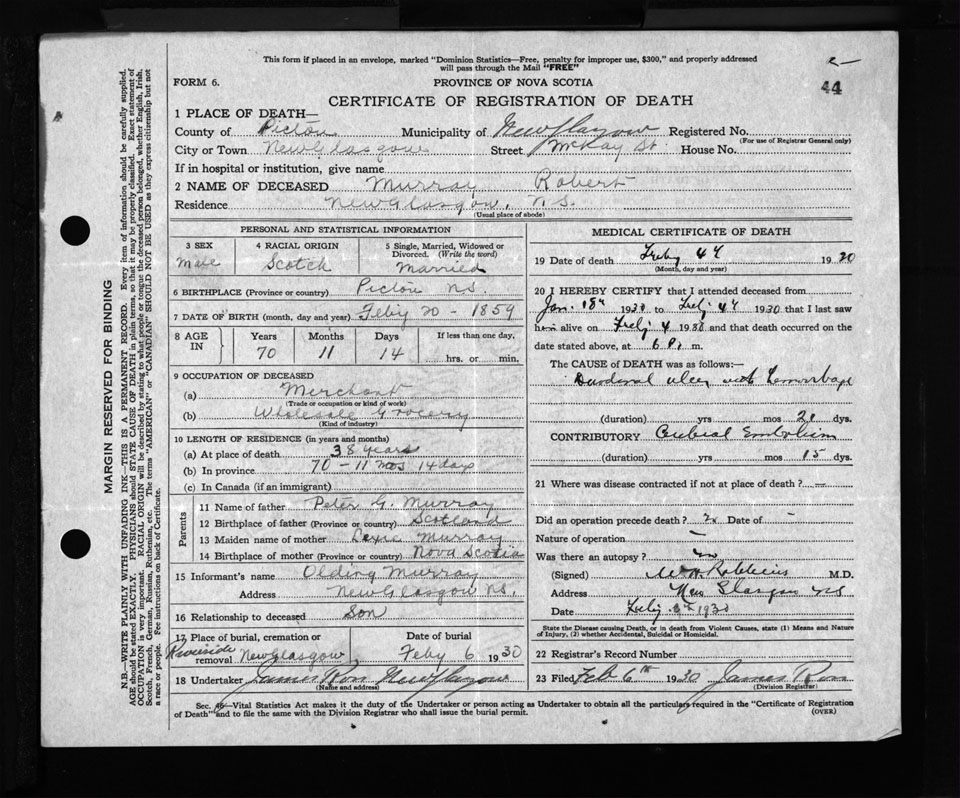 This form if placed in an envelope, marked "Dominion Statistics—Free, penalty for improper use, $300," and properly addressed
will pass through the Mail "FREE"
FORM 6.
PROVINCE OF NOVA SCOTIA
44
CERTIFICATE OF REGISTRATION OF DEATH
1 PLACE OF DEATH—
County of Pictou Municipality of New Glasgow Registered No.
(For use of Registrar General only)
City or Town New Glasgow Street McKay St. House No.
If in hospital or institution, give name
2 NAME OF DECEASED Murray Robert
Residence New Glasgow, N.S.
(Usual place of abode)
PERSONAL AND STATISTICAL INFORMATION
3 SEX Male
4 RACIAL ORIGIN Scotch
5 Single, Married, Widowed or Divorced. (Write the word) Married
6 BIRTHPLACE (Province or country) Pictou N.S.
7 DATE OF BIRTH (month, day and year) Feby 20 - 1859
8 AGE IN Years 70 Months 11 Days 14 If less than one day, hrs. or min.
9 OCCUPATION OF DECEASED
(a) Merchant
(Trade or occupation or kind of work)
(b) Wholesale Grocery
(Kind of industry)
10 LENGTH OF RESIDENCE (in years and months)
(a) At place of death 38 years
(b) In province 70 - 11 mos 14 days
(c) In Canada (if an immigrant)
Parents
11 Name of father Peter G. Murray
12 Birthplace of father (Province or country) Scotland
13 Maiden name of mother Murray
14 Birthplace of mother (Province or country) Nova Scotia
15 Informant's name Olding Murray
Address New Glasgow N.S.
16 Relationship to deceased Son
17 Place of burial, cremation or removal Riverside New Glasgow
Date of burial Feby 6 1930
18 Undertaker James Ross New Glasgow
(Name and address)
MEDICAL CERTIFICATE OF DEATH
19 Date of death Feby 4 1930
(Month, day and year)
20 I HEREBY CERTIFY that I attended deceased from
Jan. 18th 1930 to Feby 4 1930 that I last saw
him alive on Feby 4 1930 and that death occurred on the
date stated above, at 6 P. m.
The CAUSE of DEATH was as follows:—
Duodenal ulcer with hemorrhage
(duration) yrs mos dys.
CONTRIBUTORY Embolism
(duration) yrs. mos 15 dys.
21 Where was disease contracted if not at place of death? —
Did an operation precede death? no Date of —
Nature of operation —
Was there an autopsy? no
(Signed) M.D.
Address New Glasgow N.S.
Date Feby 1930
State the Disease causing Death, or in death from Violent Causes, state (1) Means and Nature
of Injury, (2) whether Accidental, Suicidal or Homicidal.
22 Registrar's Record Number
23 Filed Feb 6th 1930 James Ross
(Division Registrar)
Sec. 46—Vital Statistics Act makes it the duty of the Undertaker or person acting as Undertaker to obtain all the particulars required in the "Certificate of Registration
of Death" and to file the same with the Division Registrar who shall issue the burial permit.
(OVER)
MARGIN RESERVED FOR BINDING
N.B.—WRITE PLAINLY WITH UNFADING INK—THIS IS A PERMANENT RECORD. Every item of information should be carefully supplied.
AGE should be stated EXACTLY. PHYSICIANS should STATE CAUSE OF DEATH in plain terms, so that it may be properly classified. Exact statement of
OCCUPATION is very important. RACIAL ORIGIN will be described by stating to what people or tongue the deceased person belonged, whether English, Irish,
Scotch, French, German, Russian, Ruthenian, etc. The terms "AMERICAN" or "CANADIAN" SHOULD NOT BE USED as they express citizenship but not
a race or people. Fee instructions on back of Certificate.